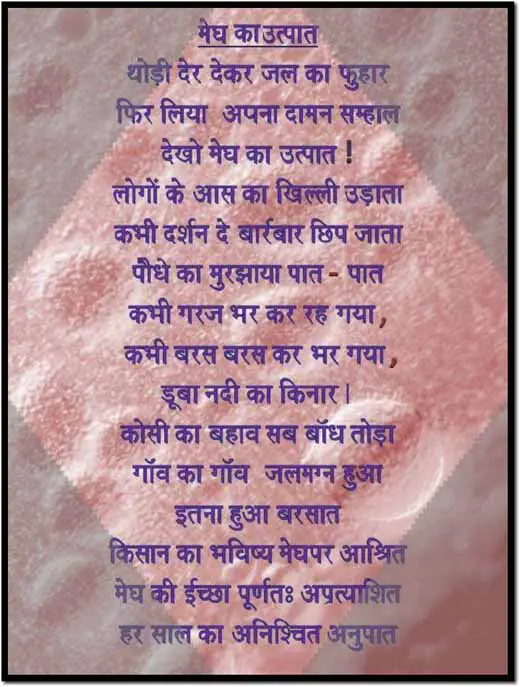 मेघ का उत्पात
थोड़ी देर देकर जल का फुहार
फिर लिया अपना दामन सम्हाल
देखो मेघ का उत्पात !
लोगों के आस का खिल्ली उड़ाता
कभी दर्शन दे बार्रबार छिप जाता
पौधे का मुरझाया पात - पात
कभी गरज भर कर रह गया ,
कभी बरस बरस कर भर गया ,
डूबा नदी का किनार।
कोसी का बहाव सब बॉध तोड़ा
गॉव का गॉव जलमग्न हुआ
इतना हुआ बरसात
किसान का भविष्य मेघपर आश्रित
मेघ की ईच्छा पूर्णतः अप्रत्याशित
हर साल का अनिश्चित अनुपात